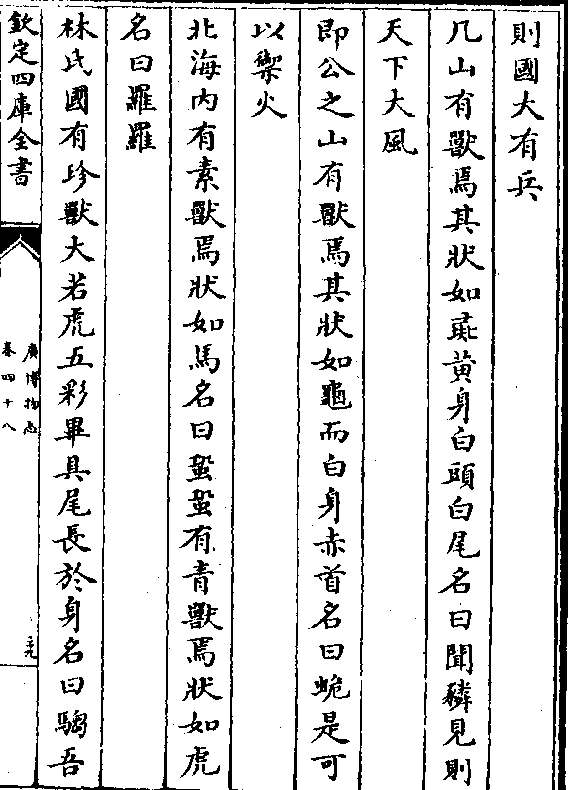 則國大有兵
几山有獸焉其狀如彘黄身白頭白尾名曰聞豨見則
天下大風
即公之山有獸焉其狀如龜而白身赤首名曰蛫是可
以禦火
北海内有素獸焉狀如馬名曰蛩蛩有青獸焉狀如虎
名曰羅羅
林氏國有珍獸大若虎五彩畢具尾長於身名曰騶吾
欽定四庫全書
廣博物志
卷四十八